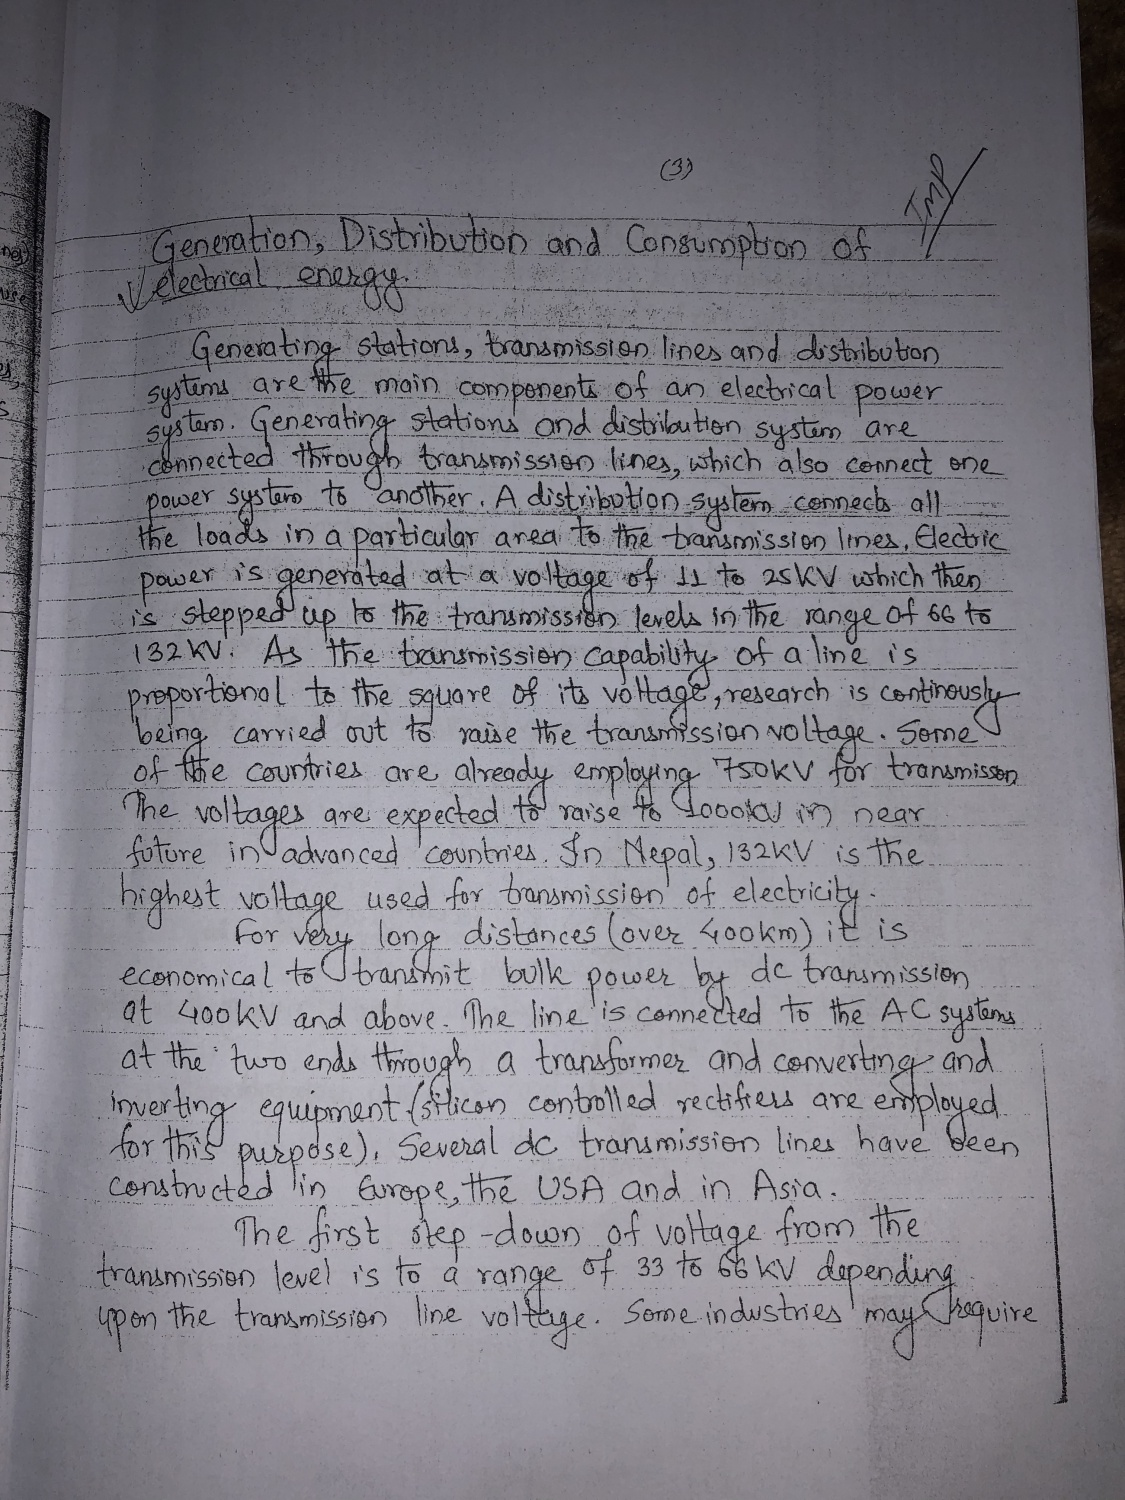 (3)
IMP
Generation, Distribution and Consumption of
electrical energy.
Generating stations, transmission lines and distribution
systems are the main components of an electrical power
system. Generating stations and distribution system are
connected through transmission lines, which also connect one
power system to another. A distribution system connects all
the loads in a particular area to the transmission lines. Electric
power is generated at a voltage of 11 to 25KV which then
is stepped up to the transmission levels in the range of 66 to
132KV. As the transmission capability of a line is
proportional to the square of its voltage, research is continously
being carried out to raise the transmission voltage. Some
of the countries are already employing 750KV for transmisson
The voltages are expected to raise to 1000KV in near
future in advanced countries. In Nepal, 132KV is the
highest voltage used for transmission of electricity.
For very long distances (over 400km) it is
economical to transmit bulk power by dc transmission
at 400KV and above. The line is connected to the AC systems
at the two ends through a transformer and converting and
inverting equipment (silicon controlled rectifiers are employed
for this purpose). Several dc transmission lines have been
constructed in Europe, the USA and in Asia.
The first step-down of voltage from the
transmission level is to a range of 33 to 66KV depending
upon the transmission line voltage. Some industries may require